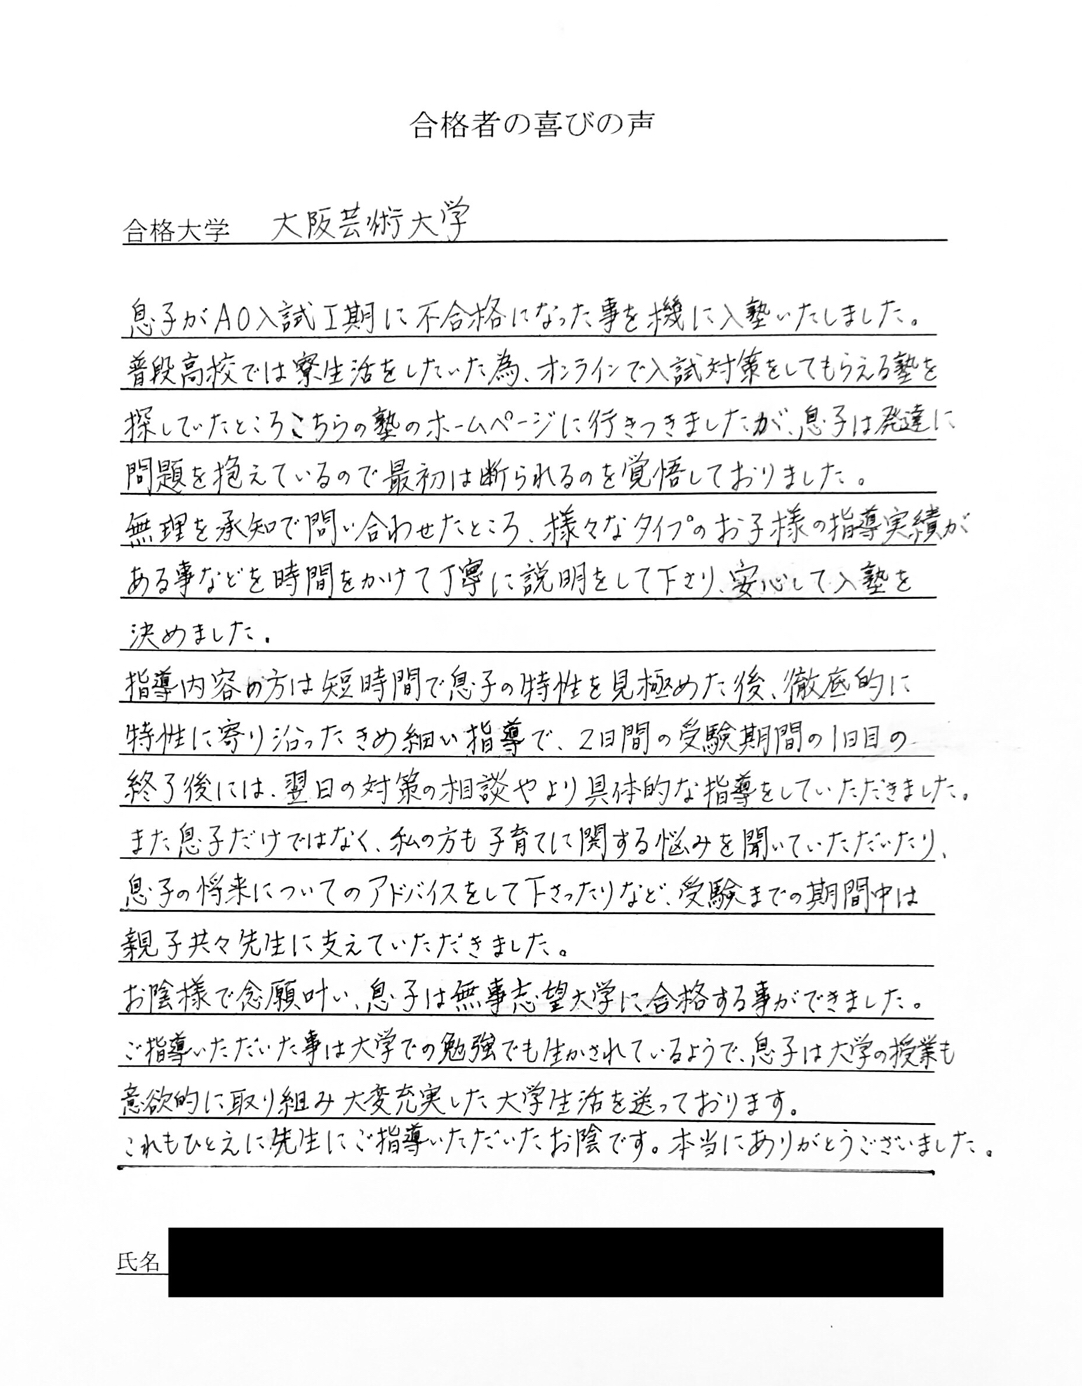 合格者の喜びの声
合格大学 大阪芸術大学
息子がAO入試Ⅰ期に不合格になった事を機に入塾いたしました。
普段高校では寮生活をしていた為、オンラインで入試対策をしてもらえる塾を
探していたところこちらの塾のホームページに行きつきましたが、息子は発達に
問題を抱えているので最初は断られるのを覚悟しておりました。
無理を承知で問い合わせたところ、様々なタイプのお子様の指導実績が
ある事などを時間をかけて丁寧に説明をして下さり、安心して入塾を
決めました。
指導内容の方は短時間で息子の特性を見極めた後、徹底的に
特性に寄り沿ったきめ細い指導で、2日間の受験期間の1日目の
終了後には、翌日の対策の相談やより具体的な指導をしていただきました。
また息子だけではなく、私の方も子育てに関する悩みを聞いていただいたり、
息子の将来についてのアドバイスをして下さったりなど、受験までの期間中は
親子共々先生に支えていただきました。
お陰様で念願叶い、息子は無事志望大学に合格する事ができました。
ご指導いただいた事は大学での勉強でも生かされているようで、息子は大学の授業も
意欲的に取り組み大変充実した大学生活を送っております。
これもひとえに先生にご指導いただいたお陰です。本当にありがとうございました。
氏名